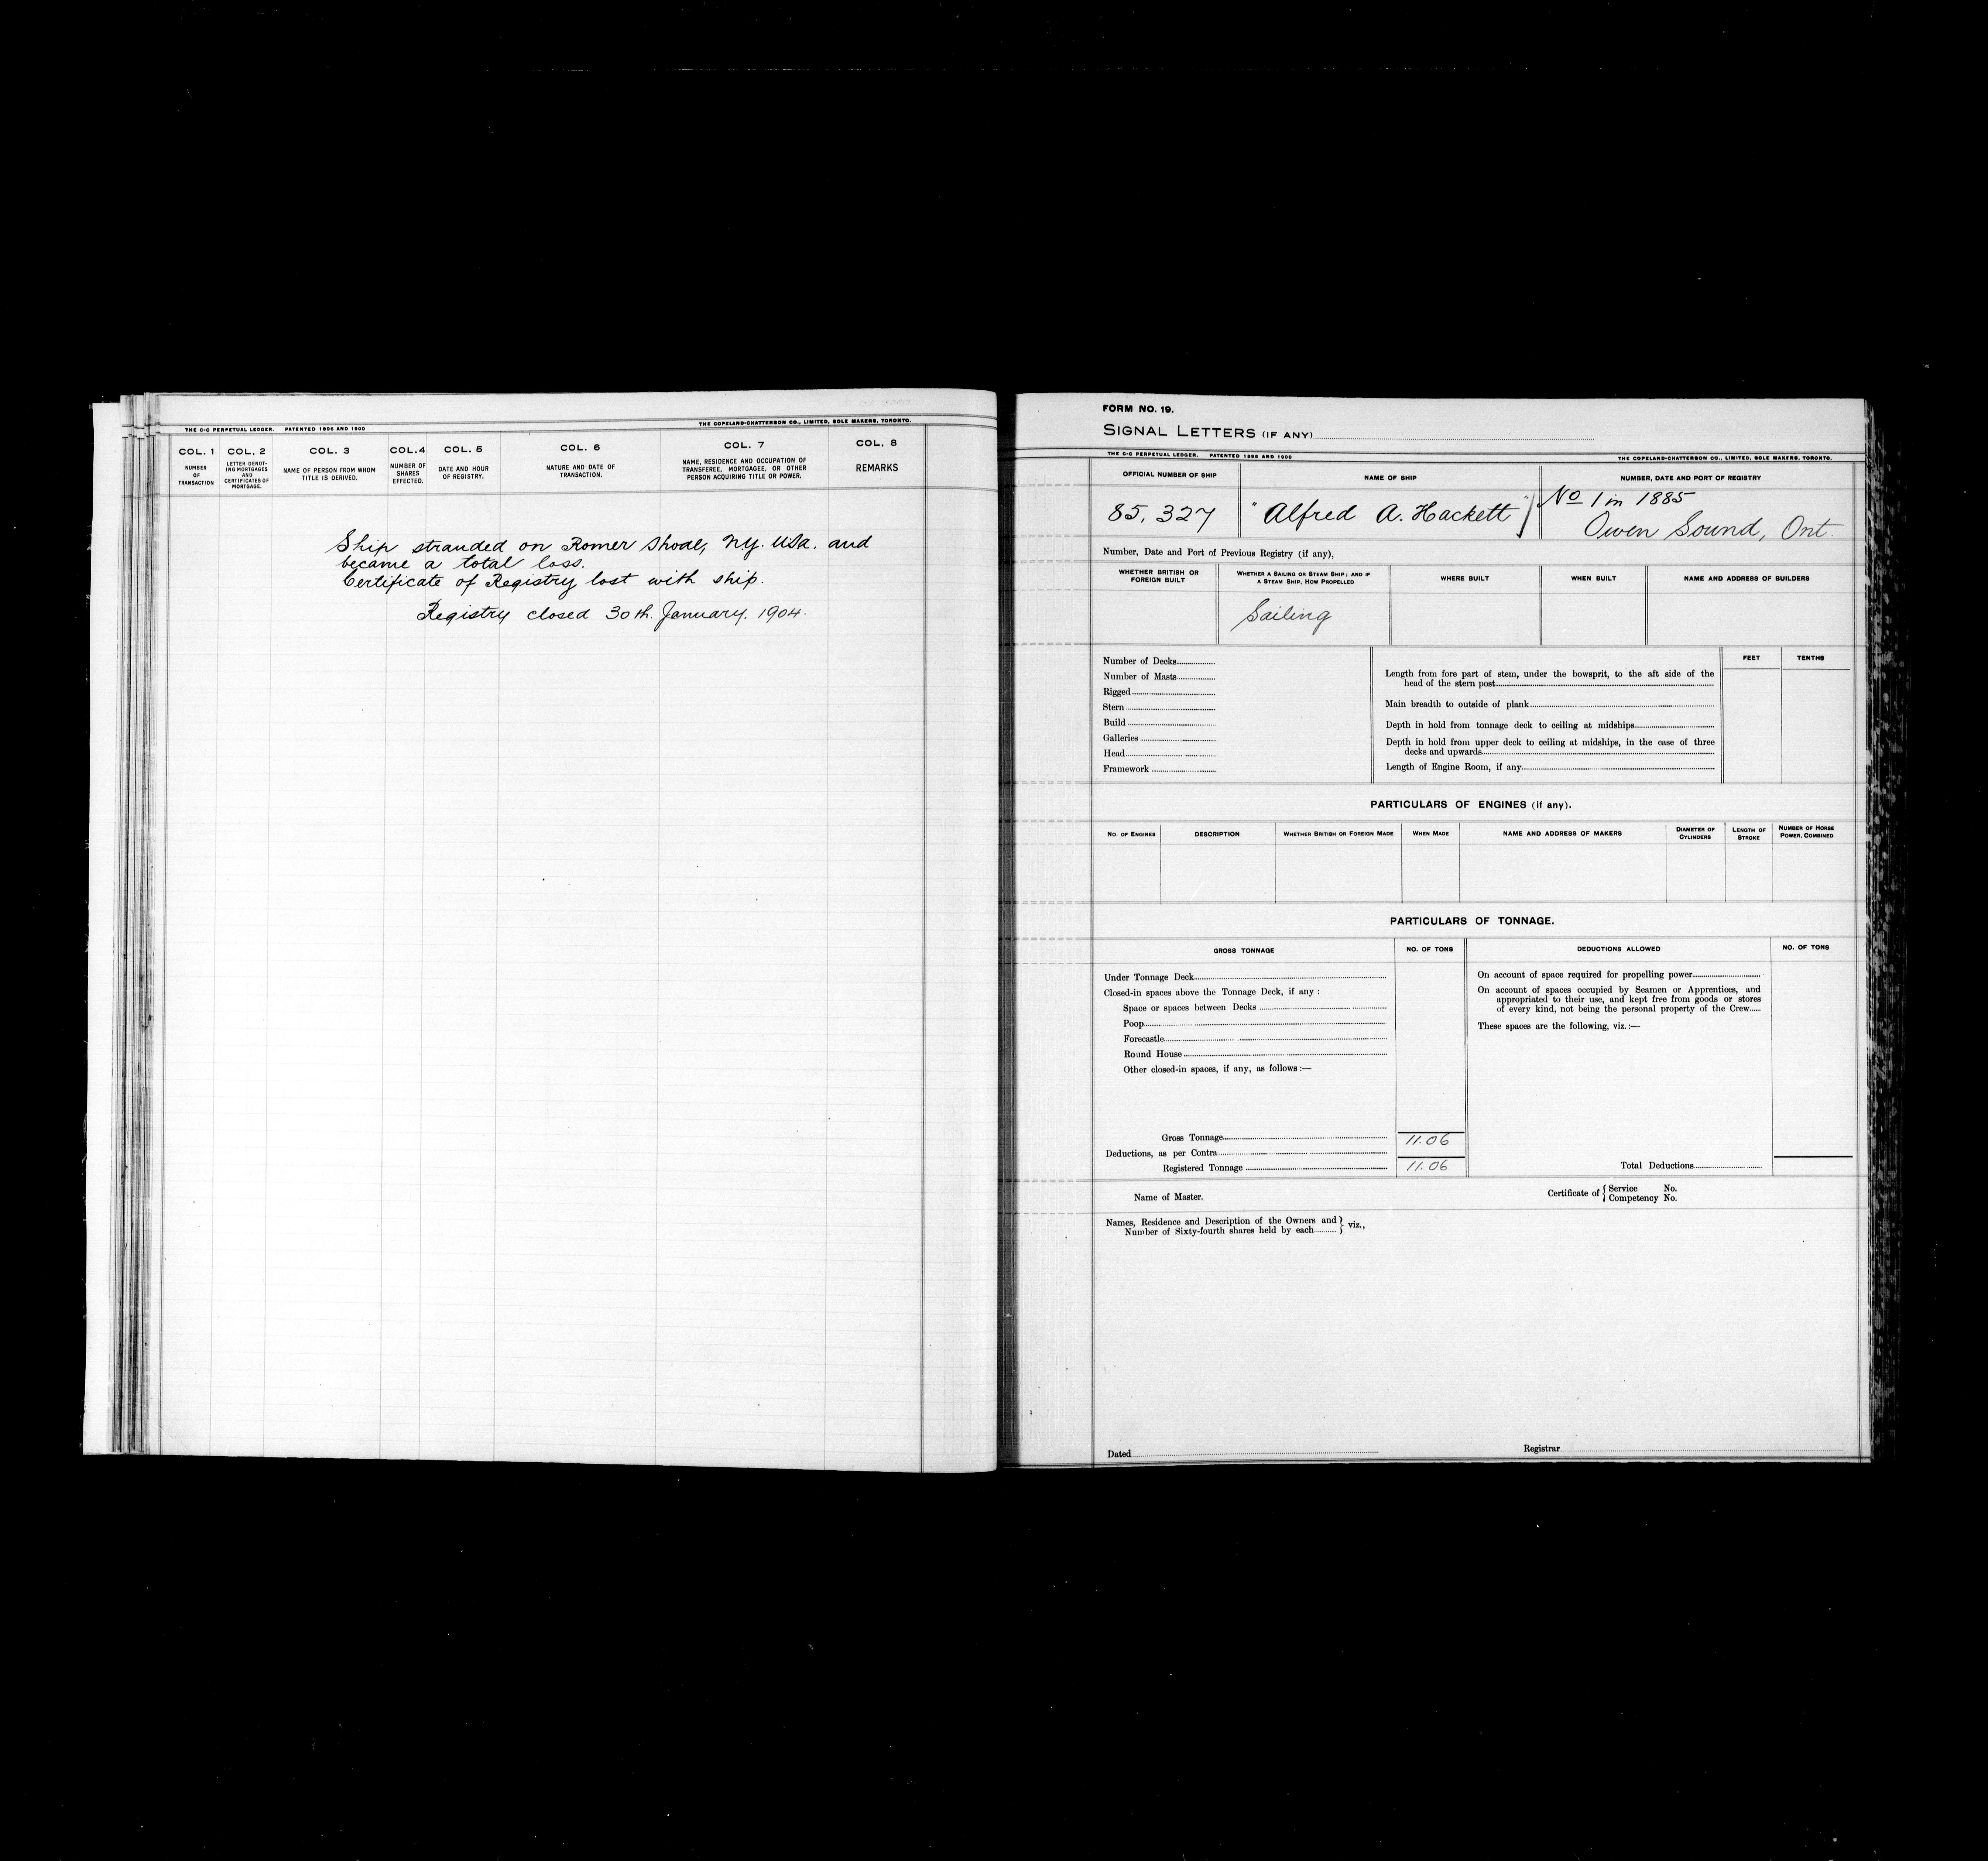 THE C-C PERPETUAL LEDGER. PATENTED 1896 AND 1900 THE COPELAND-CHATTERSON CO., LIMITED, SOLE MAKERS, TORONTO.
COL. 1 COL. 2 COL. 3 COL. 4 COL. 5 COL. 6 COL. 7 COL. 8
NUMBER OF TRANSACTION
LETTER DENOT-
ING MORTGAGES
AND
CERTIFICATES OF
MORTGAGE.
NAME OF PERSON FROM WHOM
TITLE IS DERIVED.
NUMBER OF
SHARES
EFFECTED.
DATE AND HOUR
OF REGISTRY.
NATURE AND DATE OF
TRANSACTION.
NAME, RESIDENCE AND OCCUPATION OF
TRANSFEREE, MORTGAGEE, OR OTHER
PERSON ACQUIRING TITLE OR POWER.
REMARKS
Ship stranded on Romer Shoal, NY. USA. and
became a total loss.
Certificate of Registry lost with ship.
Registry closed 30th. January. 1904.
FORM NO. 19.
SIGNAL LETTERS (IF ANY)
THE C-C PERPETUAL LEDGER. PATENTED 1896 AND 1900 THE COPELAND-CHATTERSON CO., LIMITED, SOLE MAKERS, TORONTO.
OFFICIAL NUMBER OF SHIP NAME OF SHIP NUMBER, DATE AND PORT OF REGISTRY
85,327 "Alfred A. Hackett" No 1 in 1885
Owen Sound, Ont.
Number, Date and Port of Previous Registry (if any),
WHETHER BRITISH OR
FOREIGN BUILT
WHETHER A SAILING OR STEAM SHIP; AND IF
A STEAM SHIP, HOW PROPELLED
WHERE BUILT WHEN BUILT NAME AND ADDRESS OF BUILDERS
Sailing
Number of Decks
Number of Masts
Rigged
Stern
Build
Galleries
Head
Framework
FEET TENTHS
Length from fore part of stem, under the bowsprit, to the aft side of the
head of the stern post
Main breadth to outside of plank
Depth in hold from tonnage deck to ceiling at midships
Depth in hold from upper deck to ceiling at midships, in the case of three
decks and upwards
Length of Engine Room, if any
PARTICULARS OF ENGINES (if any).
NO. OF ENGINES DESCRIPTION WHETHER BRITISH OR FOREIGN MADE WHEN MADE NAME AND ADDRESS OF MAKERS
DIAMETER OF
CYLINDERS
LENGTH OF
STROKE
NUMBER OF HORSE
POWER, COMBINED
PARTICULARS OF TONNAGE.
GROSS TONNAGE NO. OF TONS DEDUCTIONS ALLOWED NO. OF TONS
Under Tonnage Deck
Closed-in spaces above the Tonnage Deck, if any :
Space or spaces between Decks
Poop
Forecastle
Round House
Other closed-in spaces, if any, as follows :—
Gross Tonnage 11.06
Deductions, as per Contra
Registered Tonnage 11.06
On account of space required for propelling power
On account of spaces occupied by Seamen or Apprentices, and
appropriated to their use, and kept free from goods or stores
of every kind, not being the personal property of the Crew
These spaces are the following, viz. :—
Total Deductions
Name of Master. Certificate of { Service No.
Competency No.
Names, Residence and Description of the Owners and
Number of Sixty-fourth shares held by each } viz.,
Dated Registrar